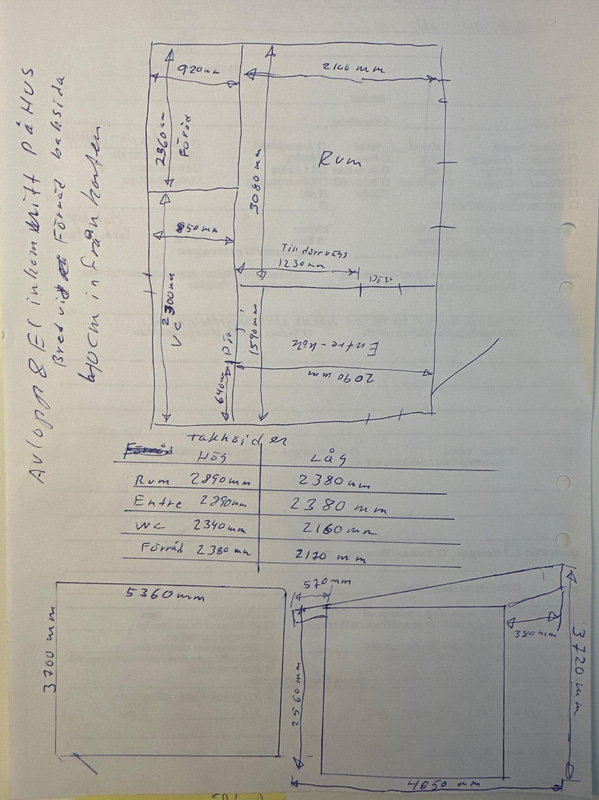 Avlopp & El inkommit På HUS
Bredvid Förråd baksida
40cm infrån kanten
920mm
2100 mm
2360mm
Förråd
3080mm
Rum
850mm
Till dörrvägg
1230mm
Dörr
2300mm
VC
Dör
1590mm
Entre-kök
640mm
2090 mm
takhöjder
HÖG
LÅG
Rum 2890mm 2380mm
Entre 2890mm 2380mm
WC 2340mm 2160mm
Förråd 2380mm 2170 mm
5360mm
3700 mm
570mm
380mm
3720mm
2560mm
4650 mm